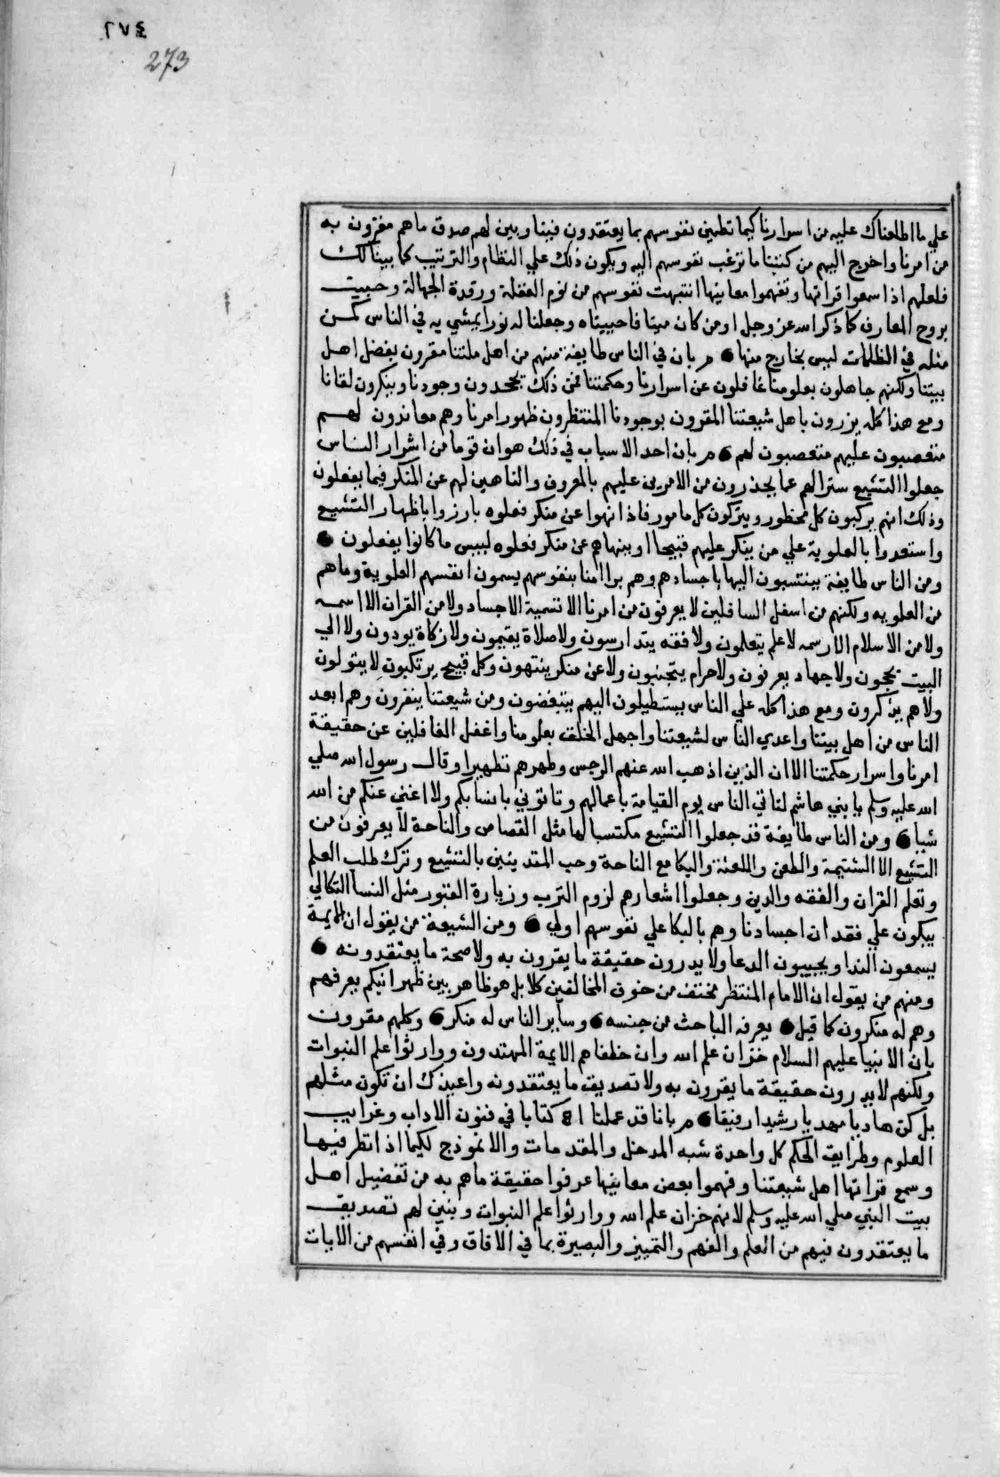 ٢٧٤
273
علي ما اطلعناك عليه من اسرارنا كيما تطمين نفوسهم بما يعتقدون فينا ويبين لهم صدق ما هم مقرون به
من امرنا واخرج اليهم من كتبنا ما ترغب نفوسهم اليه ويكون ذلك علي النظام والترتيب كما بينا لك
فلعلهم اذا سمعوا قراتها وتفهموا معانيها انتبهت نفوسهم من نوم الغفلة ورقدة الجهالة وحييت
بروح المعارف كما ذكر الله عز وجل اومن كان ميتا فاحييناه وجعلنا له نورا يمشي به في الناس كمن
مثله في الظلمات ليس بخارج منها ● م بان في الناس طايفة منهم من اهل ملتنا مقرون بفضل اهل
بيتنا ولكنهم جاهلون بعلومنا غافلون عن اسرارنا وحكمتنا فمن ذلك يجحدون وجودنا وينكرون لقانا
ومع هذا كله يزرون باهل شيعتنا المقرون بوجودنا المنتظرون ظهور امرنا وهم معاندون لهم
متعصبون عليهم متعصبون لهم ● م بان احد الاسباب في ذلك هو ان قوما من اشرار الناس
جعلوا التشيع سترا لهم عما يحذرون من الامرين عليهم بالمعروف والناهين لهم عن المنكر فيما يفعلون
وذلك انهم يركبون كل محظور ويتركون كل مامور فاذا نهوا عن منكر فعلوه بارزوا باظهار التشيع
واستعدوا بالعلوية علي من ينكر عليهم قبيحا او ينهاهم عن منكر فعلوه لبيس ما كانوا يفعلون ●
ومن الناس طايفة ينتسبون الينا باجسادهم وهم برا منا بنفوسهم يسمون انفسهم العلوية وما هم
من العلويه ولكنهم من اسفل السافلين لا يعرفون من امرنا الا تسمية الاجساد ولا من القران الا اسمه
ولا من الاسلام الا رسمه لا علم يتعلمون ولا فقه يتدارسون ولا صلاة يقيمون ولا زكاة يودون ولا الي
البيت يحجون ولا جهاد يعرفون ولا حرام يتجنبون ولا عن منكر ينتهون وكل قبيح يرتكبون لا يتولون
ولا هم يذكرون ومع هذا كله علي الناس يستطيلون اليهم يتبغضون ومن شيعتنا ينفرون وهم ابعد
الناس من اهل بيتنا واعدي الناس لشيعتنا واجهل الخلف بعلومنا واغفل الغافلين عن حقيقة
امرنا واسرار حكمتنا الا ان الذين اذهب الله عنهم الرجس وطهرهم تطهيرا وقال رسول الله صلي
الله عليه وسلم يا بني هاشم لتاتي الناس يوم القيامة باعمالهم وتاتوني بانسابكم ولا اغني عنكم من الله
شيا ● ومن الناس طايفة قد جعلوا التشيع مكتسبا لها مثل القصاص والناحة لا يعرفون من
التشيع الا الشتيمة والطعن واللعنة والبكا مع الناحة وحب المتدينين بالتشيع وترك طلب العلم
وتعلم القران والفقه والدين وجعلوا اشعارهم لزوم الترب وزيارة القبور مثل النسا الثكالي
يبكون علي فقدان اجسادنا وهم بالبكا علي نفوسهم اولي ● ومن الشيعة من يقول ان الايمة
يسمعون الندا ويجيبون الدعا ولا يدرون حقيقة ما يقرون به ولا صحة ما يعتقدونه ●
ومنهم من يقول ان الامام المنتظر مختف من خوف المخالفين كلا بل هو ظاهر بين ظهرانيكم يعرفهم
وهم له منكرون كما قيل ● يعرفه الباحث من جنسه ● وساير الناس له منكر ● وكلهم مقرون
بان الانبيا عليهم السلام خزان علم الله وان خلفاهم الايمة المهتدون ووارثوا علم النبوات
ولكنهم لا يدرون حقيقة ما يقرون به ولا تصديق ما يعتقدونه واعيذك ان تكون مثلهم
بل كن هاديا مهديا رشيدا رفيقا ● م بانا قد عملنا ا٥ كتابا في فنون الاداب وغرايب
العلوم وطرايق الحكم كل واحدة شبه المدخل والمقدمات والانموذج لكيما اذا نظر فيها
وسمع قراتها اهل شيعتنا وفهموا بعض معانيها عرفوا حقيقة ما هم به من تفضيل اهل
بيت النبي صلي الله عليه وسلم لانهم خزان علم الله ووارثوا علم النبوات وبين لهم تصديق
ما يعتقدون فيهم من العلم والفهم والتمييز والبصيرة بما في الافاق وفي انفسهم من الايات